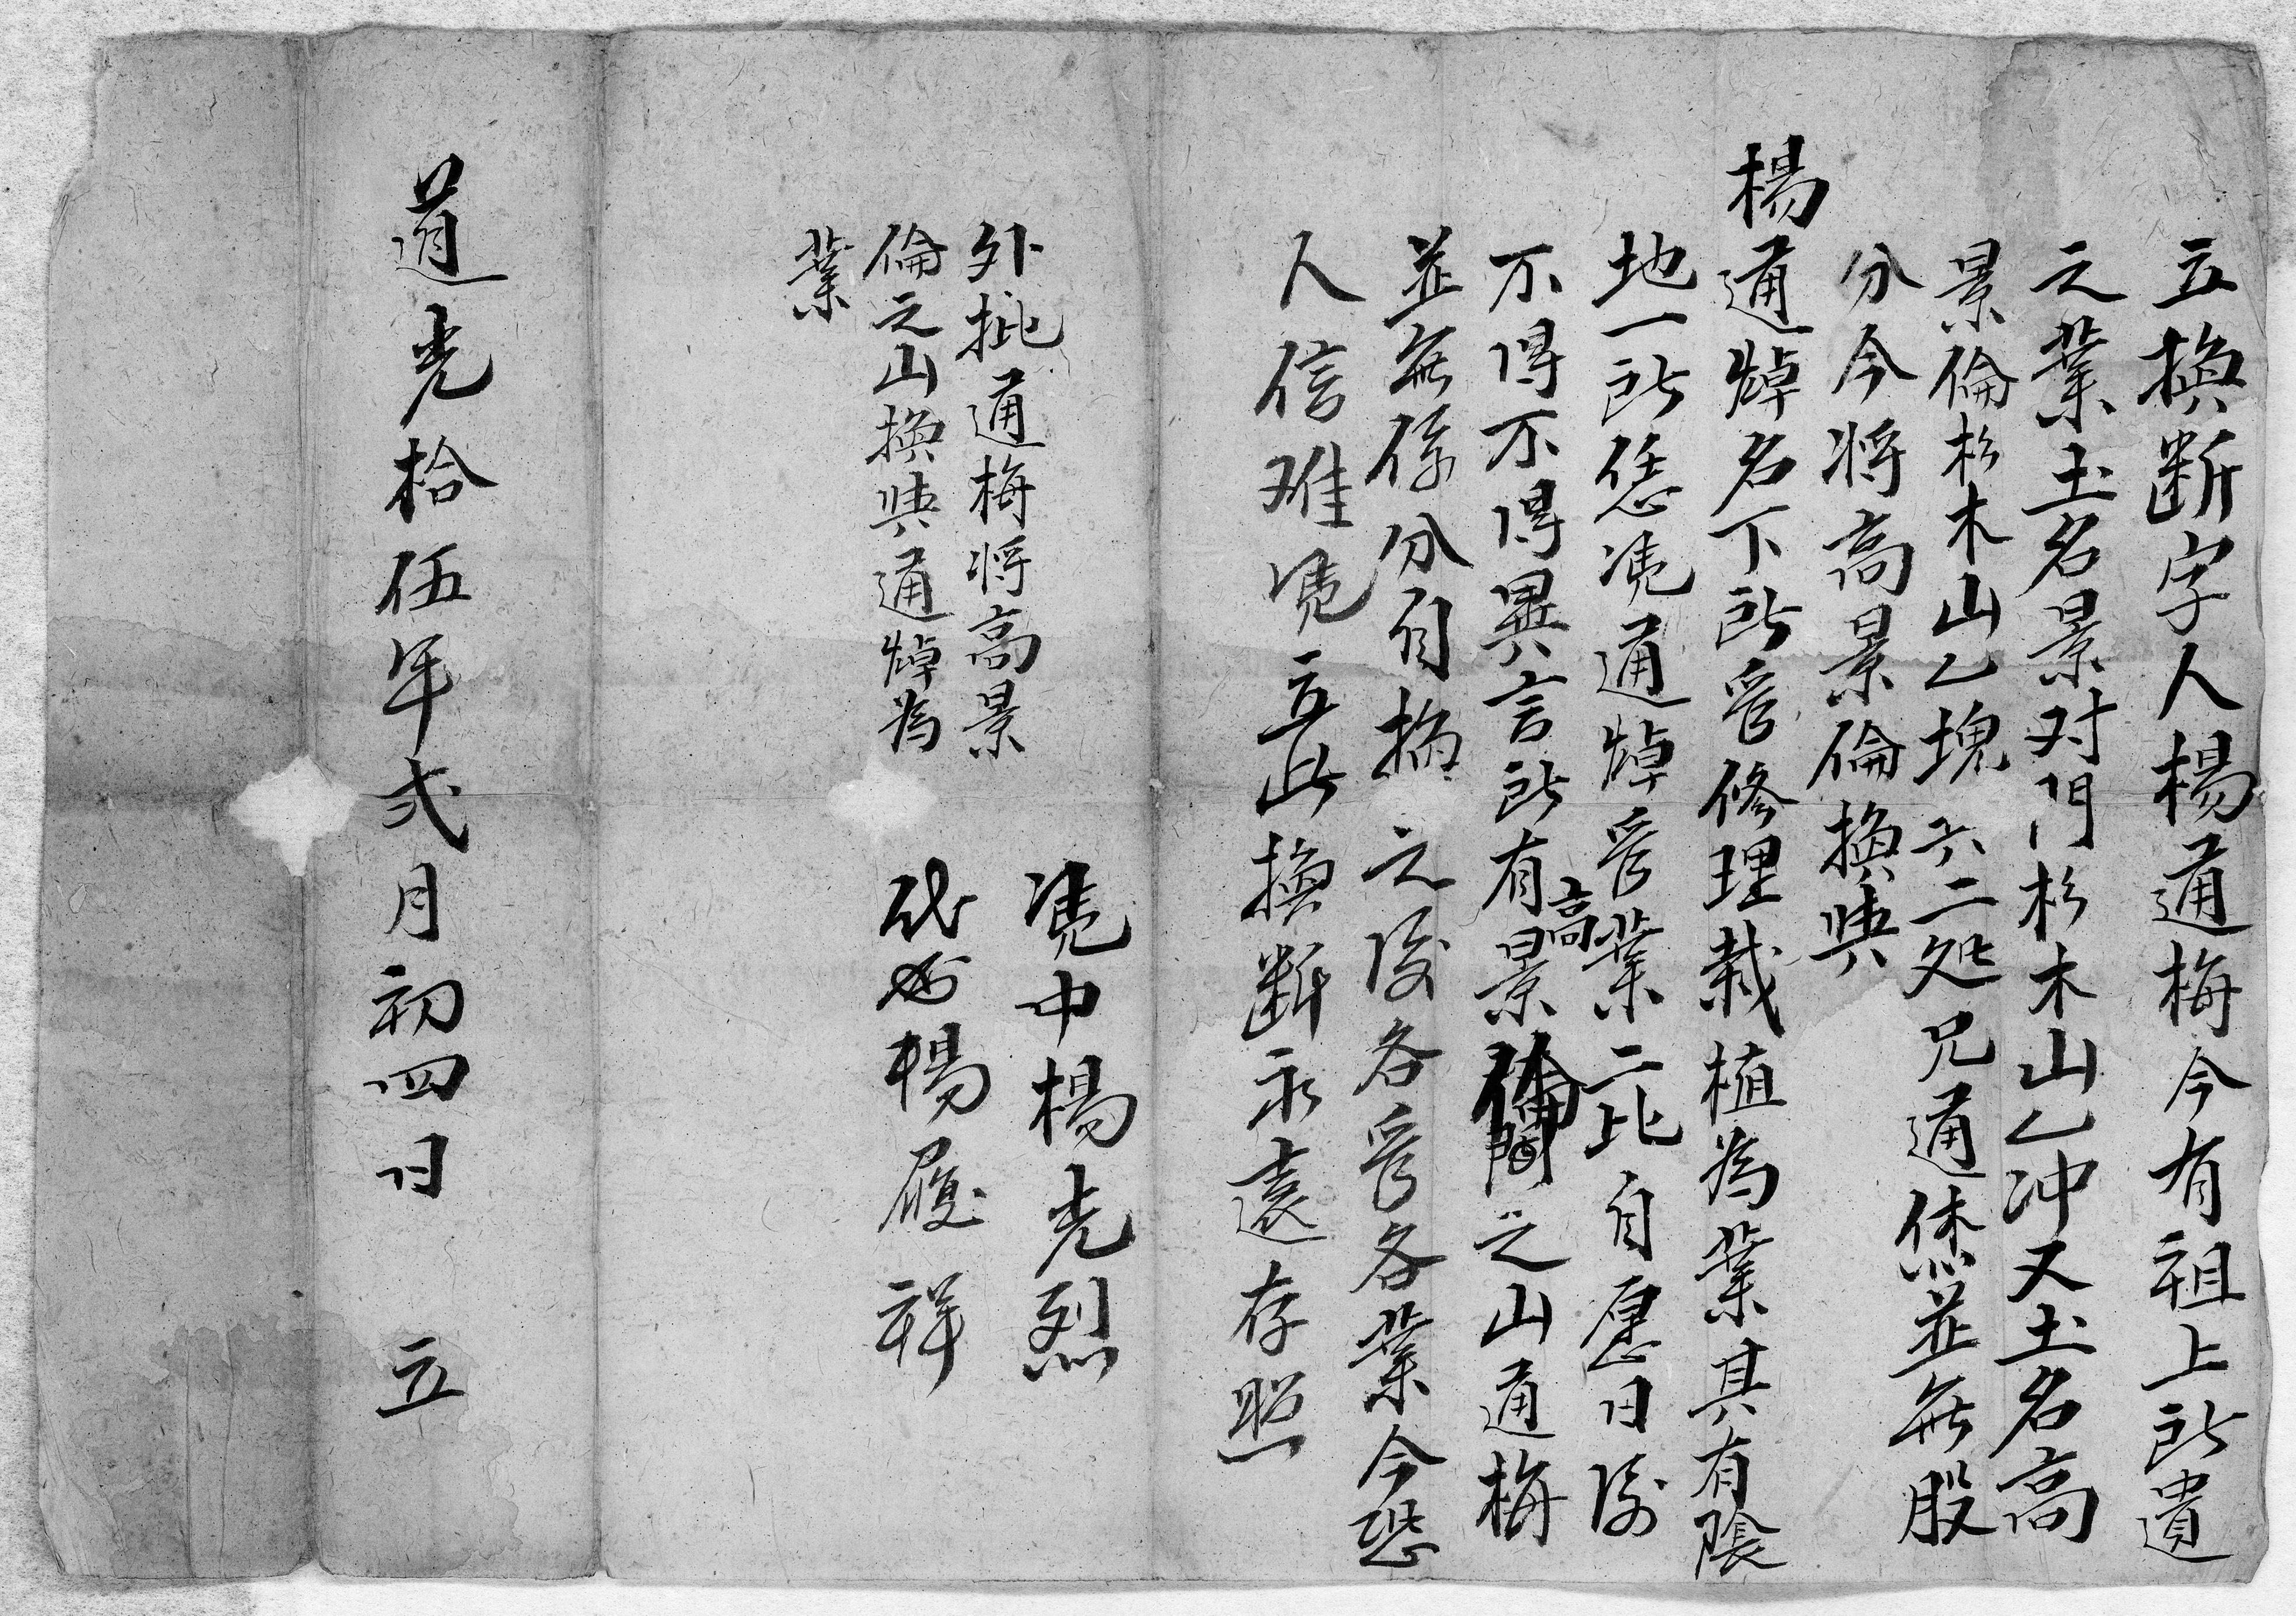 立換断字人楊通梅今有祖上所遺
之業土名景对門杉木山乙冲又土名高
景倫杉木山乙塊共二处兄通烋並無股
分今将高景倫換與
楊通焯名下所管修理栽植為業其有陰
地一所恁凴通焯管業二比自愿日後
不得不得異言所有高景倫之山通梅
並無係分自換之後各管各業今恐
人信难凴立此換断永遠存照
外批通梅将高景
倫之山換與通焯為
業
凴中楊光烈
代筆楊履祥
道光拾伍年弍月初四日 立